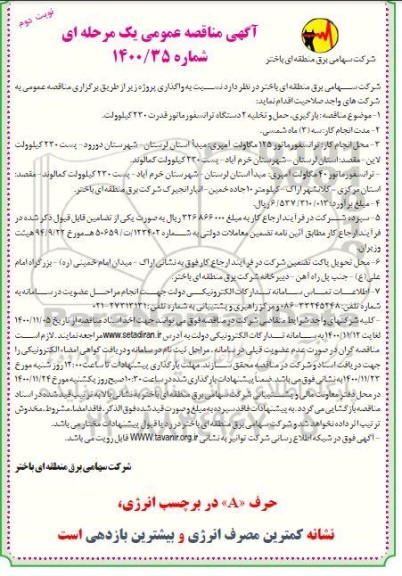 نوبت دوم
آگهی مناقصه عمومی یک مرحله ای
شماره ۱۴۰۰/۳۵
شرکت سهامی برق منطقه ای باختر
شرکت سهامی برق منطقه ای باختر در نظر دارد نسبت به واگذاری پروژه زیر از طریق برگزاری مناقصه عمومی به
شرکت های واجد صلاحیت اقدام نماید:
۱- موضوع مناقصه: بارگیری، حمل و تخلیه ۲ دستگاه ترانسفورماتور قدرت ۲۳۰ کیلوولت.
۲- مدت انجام کار: سه (۳) ماه شمسی.
۳- محل انجام کار: ترانسفورماتور ۱۲۵ مگاولت آمپری: مبدأ استان لرستان – شهرستان دورود – پست ۲۳۰ کیلوولت
لاین – مقصد: استان لرستان – شهرستان خرم آباد – پست ۲۳۰ کیلوولت کمالوند.
- ترانسفورماتور ۴۰ مگاولت آمپری: مبدأ استان لرستان – شهرستان خرم آباد – پست ۲۳۰ کیلوولت کمالوند – مقصد:
استان مرکزی – کلانشهر اراک – کیلومتر ۱۰ جاده خمین – انبار انجیرک شرکت برق منطقه ای باختر.
۴- مبلغ برآورد: ۶/۵۳۷/۳۱۰/۰۱۳ ریال
۵- سپرده شرکت در فرآیند ارجاع کار به مبلغ ۳۲۶٫۸۶۶٫۰۰۰ ریال به صورت یکی از تضامین قابل قبول ذکر شده در
فرآیند ارجاع کار مطابق آئین نامه تضمین معاملات دولتی به شماره ۱۲۳۴۰۲/ت ۵۰۶۵۹ هـ مورخ ۹۴/۹/۲۲ هیئت
وزیران.
۶- محل تحویل پاکت تضمین شرکت در فرآیند ارجاع کار فوق به نشانی اراک – میدان امام خمینی (ره) – بزرگراه امام
علی (ع) – جنب پل راه آهن – دبیرخانه شرکت برق منطقه ای باختر.
۷- اطلاعات تماس سامانه تدارکات الکترونیکی دولت جهت انجام مراحل عضویت در سامانه به
شماره تلفن: ۳۳۲۴۵۲۴۸-۰۸۶ و مرکز راهبری و پشتیبانی به شماره تلفن: ۲۷۳۱۳۱۳۱-۰۲۱
- کلیه شرکتهای واجد شرایط متقاضی شرکت در مناقصه فوق می توانند جهت اخذ اسناد مناقصه از تاریخ ۱۴۰۰/۱۱/۰۵
لغایت ۱۴۰۰/۱۱/۱۲ به سامانه تدارکات الکترونیکی دولت به آدرس www.setadiran.ir مراجعه نمایند. لازم است
مناقصه گران در صورت عدم عضویت قبلی در سامانه، مراحل ثبت نام در سامانه و دریافت گواهی امضا الکترونیکی را
جهت دریافت اسناد و شرکت در مناقصه محقق سازند. مهلت بارگذاری پیشنهادات تا ساعت ۱۴:۰۰ روز شنبه مورخ
۱۴۰۰/۱۱/۲۳ به نشانی فوق می باشد ضمناً پیشنهادات بارگذاری شده در ساعت ۱۰:۳۰ صبح روز یکشنبه مورخ ۱۴۰۰/۱۱/۲۴
در محل دفتر معاونت مالی و پشتیبانی شرکت برق منطقه ای باختر به نشانی بالا به ترتیب قید شده در اسناد
مناقصه بازگشایی می گردد. به پیشنهادات فاقد سپرده به مبلغ و صورت قید شده فوق الذکر، فاقد امضا، مشروط، مخدوش
ترتیب اثر داده نخواهد شد و شرکت سهامی برق منطقه ای باختر در رد یا قبول پیشنهادات مختار می باشد.
- آگهی فوق در شبکه اطلاع رسانی شرکت توانیر به نشانی WWW.tavanir.org.ir قابل رویت می باشد.
شرکت سهامی برق منطقه ای باختر
حرف «A» در برچسب انرژی،
نشانه کمترین مصرف انرژی و بیشترین بازدهی است